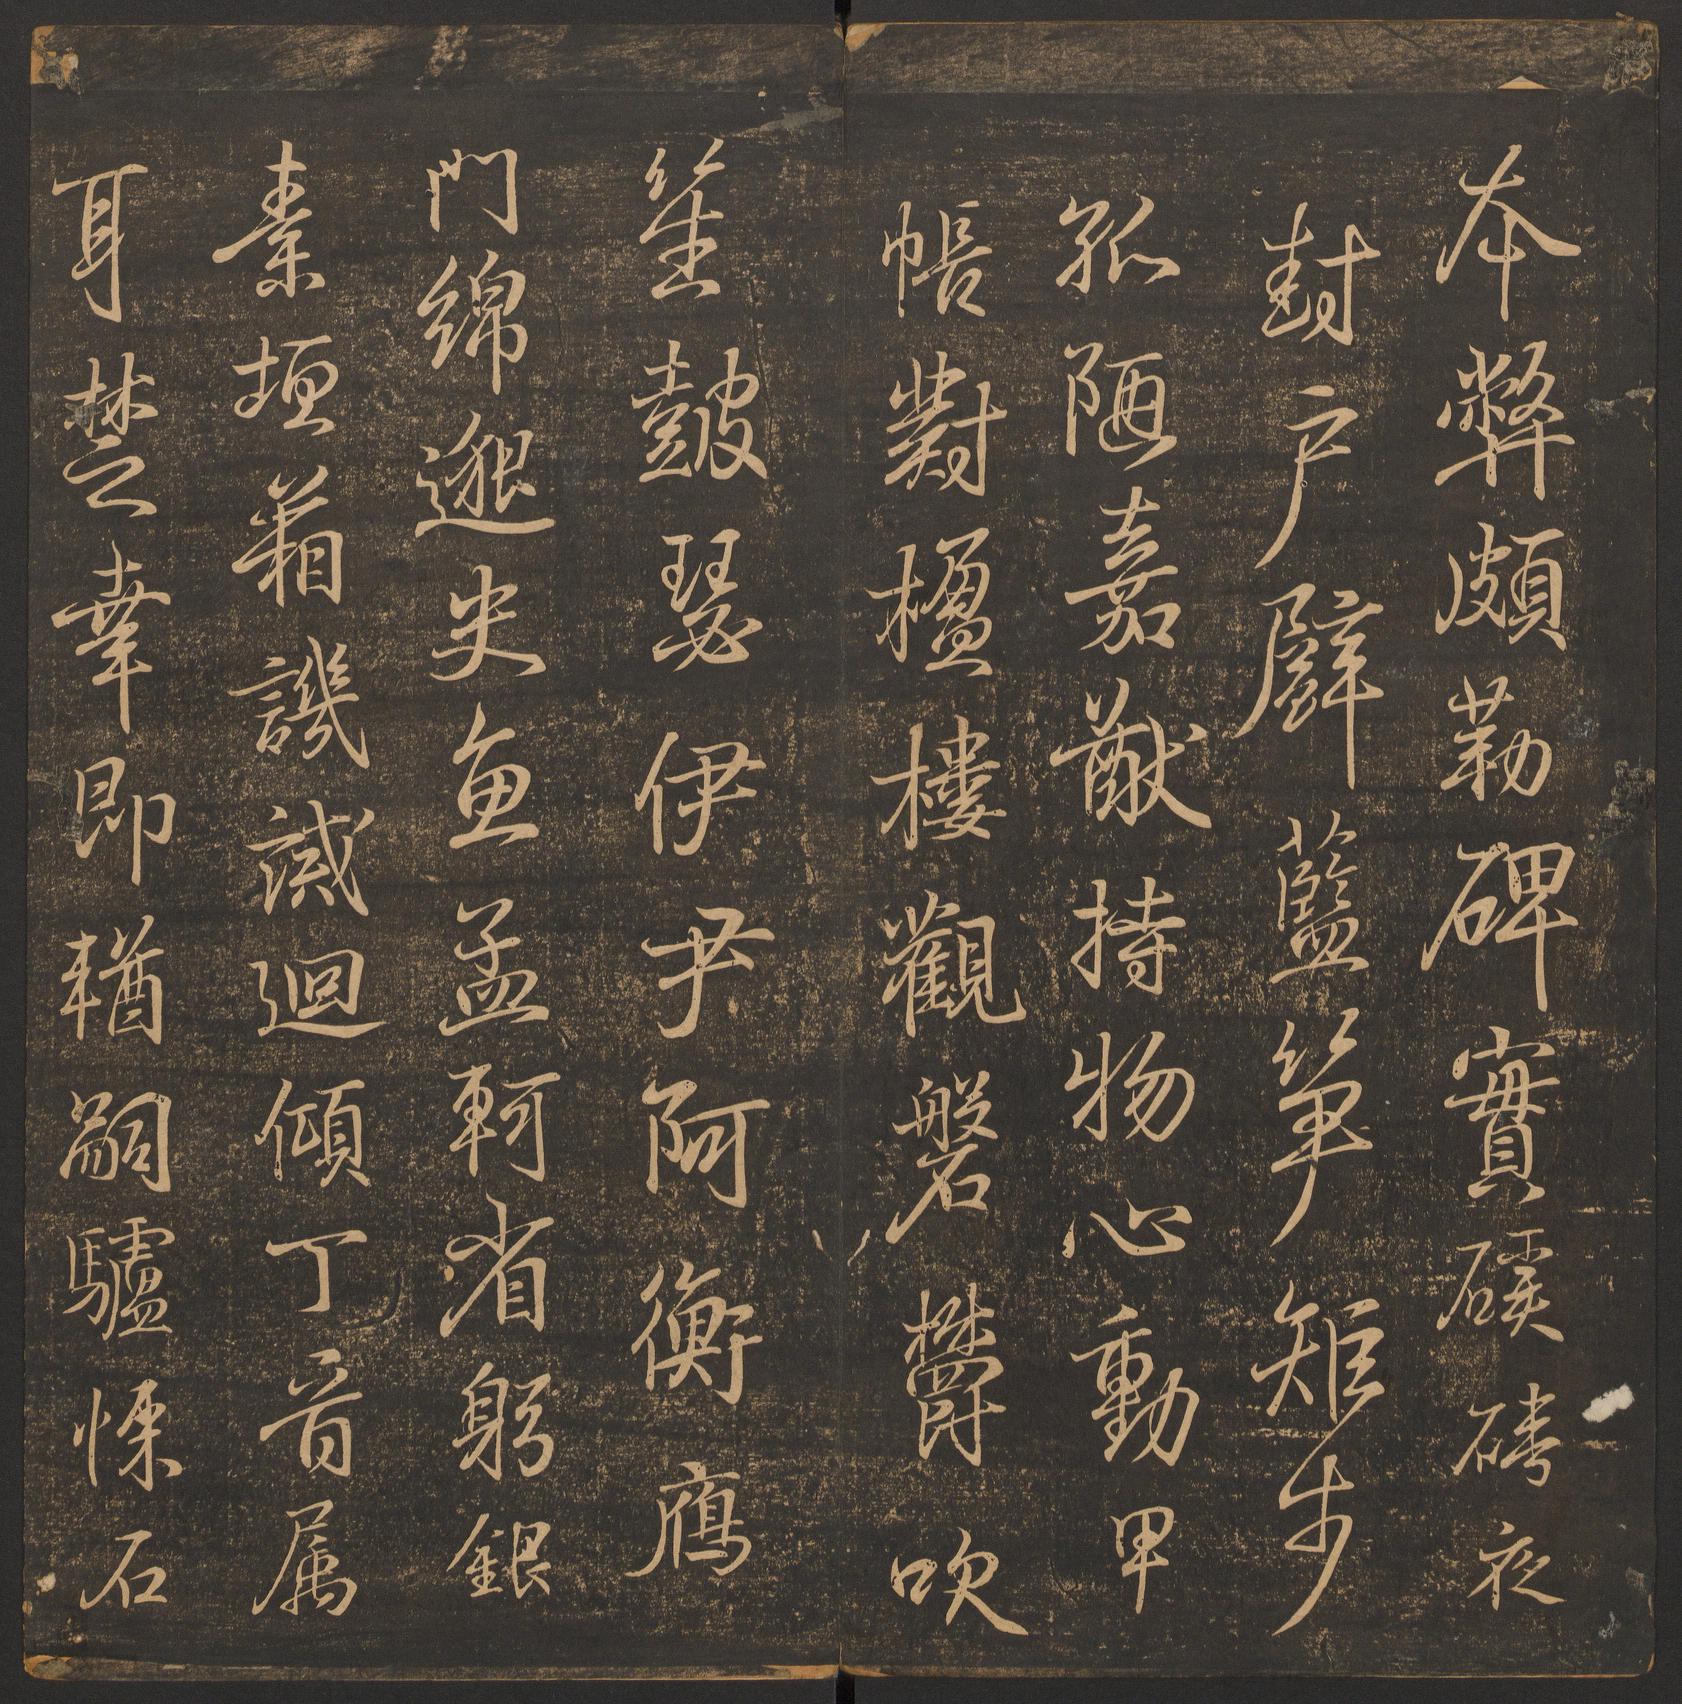 本弊頗勒碑實磎磚夜
封戶壁藍筆矩步
孤陋嘉猷持物心動甲
帳對楹樓觀磐欝吹
笙鼓瑟伊尹阿衡鴈
門綿邈史魚孟軻省躬銀
素垣箱譏誡迴傾丁音属
耳楚幸即輶嗣驢慄石